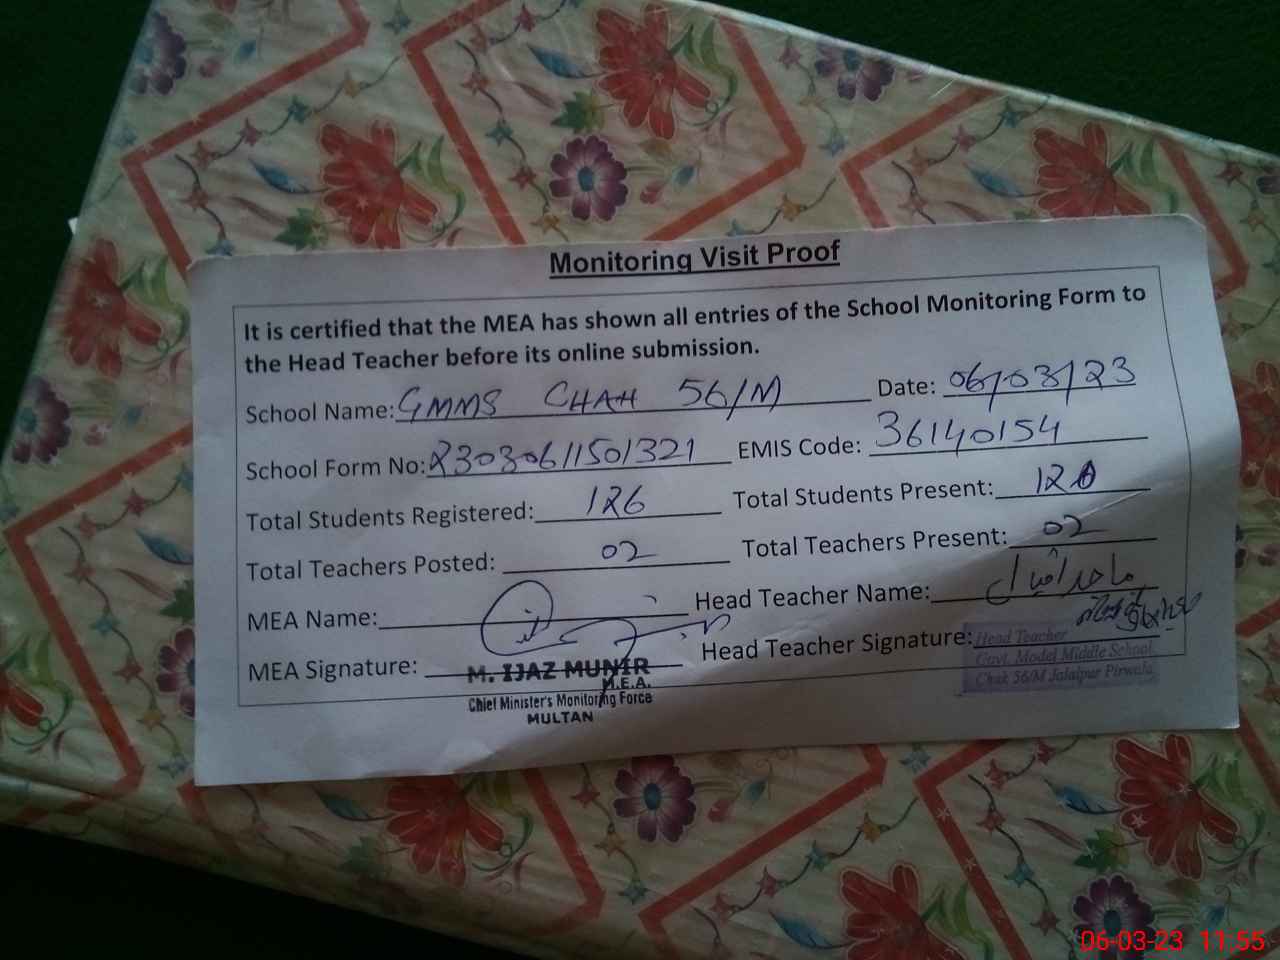 Monitoring Visit Proof
It is certified that the MEA has shown all entries of the School Monitoring Form to
the Head Teacher before its online submission.
School Name: GMMS CHAH 56/M Date: 06/03/23
School Form No: 23030611501321 EMIS Code: 36140154
Total Students Registered: 126 Total Students Present: 120
Total Teachers Posted: 02 Total Teachers Present: 02
MEA Name: Head Teacher Name: ماجد اقبال
MEA Signature: Head Teacher Signature:
M. IJAZ MUNIR
M.E.A.
Chief Minister's Monitoring Force
MULTAN
Head Teacher
Govt. Model Middle School
Chak 56/M Jalalpur Pirwala
06-03-23 11:55